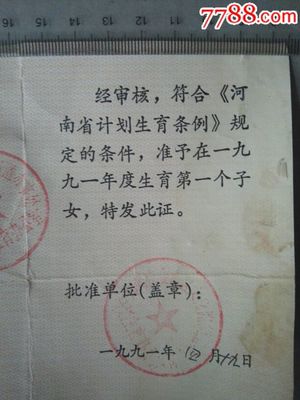 7788.com
经审核，符合《河
南省计划生育条例》规
定的条件，准予在一九
九一年度生育第一个子
女，特发此证。
批准单位（盖章）：
一九九一年 四月十九日